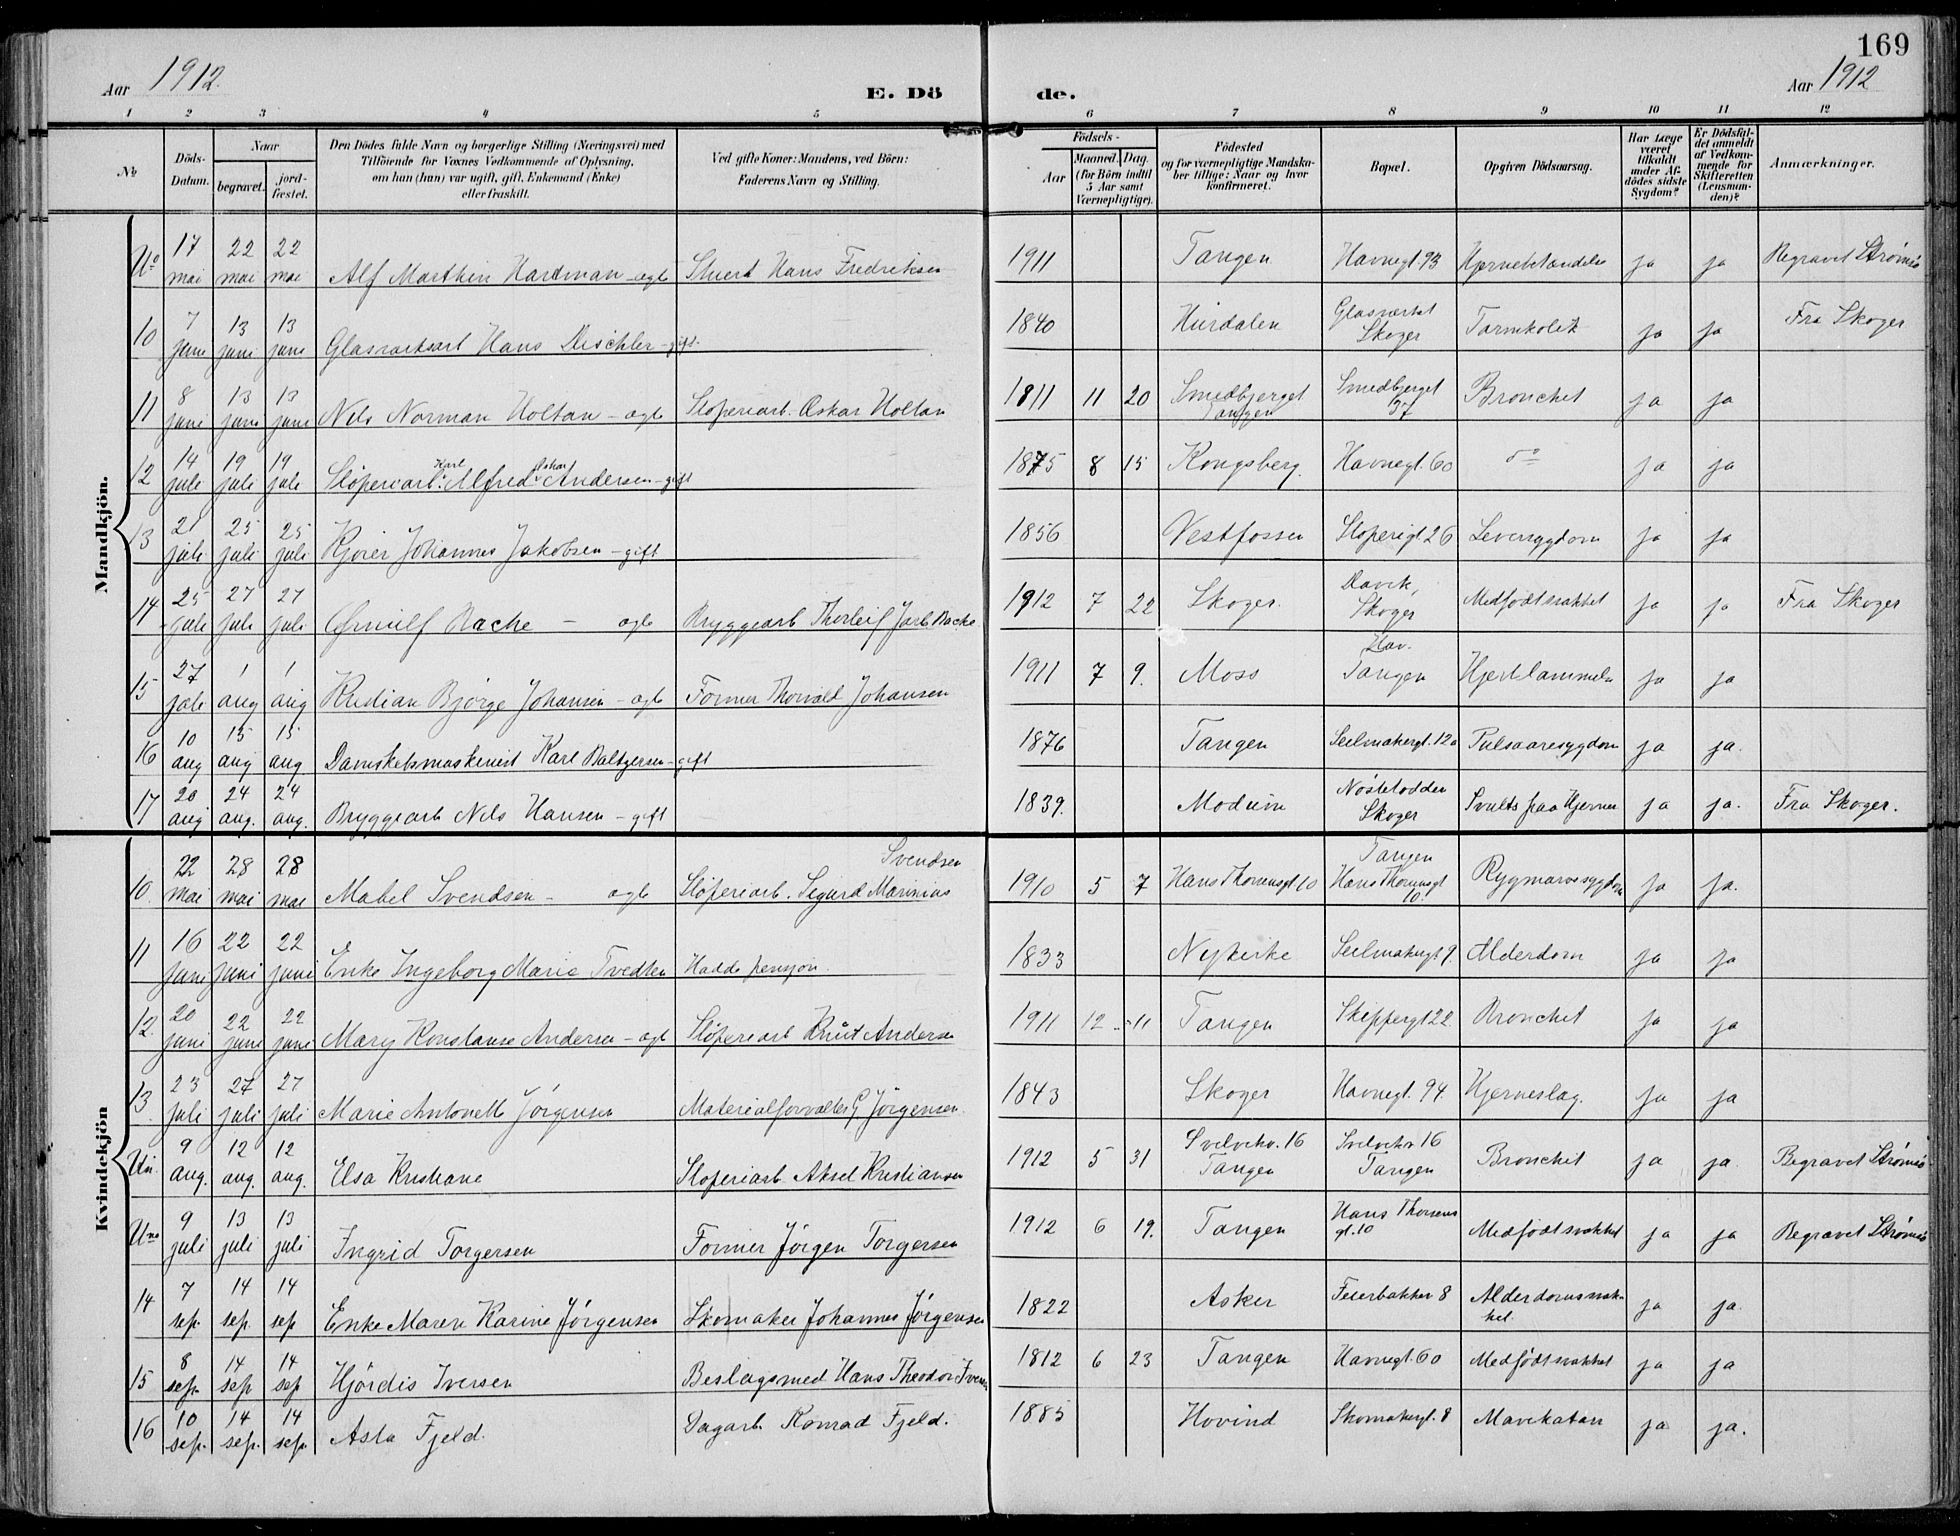 169
Aar 1912.
E. Dö
de.
Aar 1912
1 2 3 4 5 6 7 8 9 10 11 12
No
Döds-Datum.
Naar
begravet.
jord-fæstet.
Den Dödes fulde Navn og borgerlige Stilling (Næringsvei) med
Tilföiende for Voxnes Vedkommende af Oplysning,
om han (hun) var ugift, gift, Enkemand (Enke)
eller fraskilt.
Ved gifte Koner: Mandens, ved Börn:
Faderens Navn og Stilling.
Födsels-
Aar
Maaned.
Dag.
(for Börn indtil
5 Aar samt
Værnepligtige).
Födested
og for værnepligtige Mandska-
ber tillige: Naar og hvor
konfirmeret.
Bopæl.
Opgiven Dödsaarsag.
Har Læge
været
tilkaldt
under Af-
dödes sidste
Sygdom?
Er Dödsfal-
det anmeldt
af Vedkom-
mende for
Skifteretten
(Lensman-
den)?
Anmærkninger.
Mandkjön.
17 mai 22 mai 22 mai Alf Marthin Hardman - egte Stuert Hans Fredriksen 1911 Tangen Havnegt. 93 Hjernebetændelse ja ja Begravet Strømsø
10 7 juni 13 juni 13 juni Glasværksarb Hans Dischler - gift. 1840 Hurdalen Glasverket Skoger Tarmkolik ja ja Fra Skoger
11 8 juni 13 juni 13 juni Nils Norman Holtan - egte Sloperiarb. Oskar Holtan 1811 11 20 Smedbjerget Tangen Smedbjerget 37 Bronchet ja ja
12 14 juli 19 juli 19 juli Slöperiarb. Karl Alfred Oskar Andersen - gift 1875 8 15 Kongsberg. Havnegt. 60 do ja ja
13 21 juli 25 juli 25 juli Kjører Johannes Jakobsen - gift 1856 Vestfossen Sloperigt 26 Leversygdom ja ja
14 25 juli 27 juli 27 juli Ørnulf Bache - egte Bryggearb Thorleif Jarl Bache 1912 7 22 Skoger. Skoger Medfödt svakhet ja ja Fra Skoger
15 27 juli 1 aug 1 aug Kristian Bjørge Johansen - egte Former Thorvald Johansen 1911 7 9. Moss Tangen Hjertelammelse ja ja
16 10 aug 15 aug 15 aug Damskibsmaskinist Karl Baltzersen - gift 1876 Tangen Seilmakergt. 12a Pulsaaresygdom ja ja.
17 20 aug 24 aug. 24 aug. Bryggearb Nils Hansen - gift 1839. Modum Nøstetodden Skoger Svulst paa Hjernen ja ja. Fra Skoger.
Kvindekjön
10. 22 mai 28 mai 28 mai Mabel Svendsen - egte Slöperiarb. Sigurd Marinius Svendsen 1910 5 7 Hans Thornesgt 10 Tangen Hans Thornesgt 10. Rygmarvssygdom ja ja.
11 16 juni 22 juni 22 juni Enke Ingeborg Marie Tvedten Hadde pensjon. 1833 Nykirke Seilmakergt 9 Alderdom ja ja
12. 20 juni 22 juni 22 juni Mary Konstanse Andersen - egte Slöperiarb Knut Andersen 1911 12 11 Tangen Skippergt 22 Bronchet ja ja
13 23 juli 27 juli 27 juli Marie Antonette Jørgensen Materialforvalter G Jørgensen. 1843 Skoger Havnegt. 94. Hjerneslag. ja ja
Un. 9 aug. 12 aug. 12 aug. Elsa Kristiane Sloperiarb. Aksel Kristiansen 1912 5 31 Svelvekv. 16 Tangen Svelvekv 16 Tangen Bronchet ja ja. Begravet Strømsø
Uno 9 juli 13 juli 13 juli Ingrid Torgersen Former Jörgen Torgersen 1912 6 19. Tangen Hans Thornesgt. 10 Medfödt svakhet ja ja Begravet Strømsø
14 7 sep. 14 sep. 14 sep Enke Maren Karine Jørgensen Skomaker Johannes Jørgensen 1822 Asker Feierbakken 8 Alderdomssvakhet. ja ja.
15 8 sep. 14 sep 14 sep Hjördis Iversen Beslagsmed Hans Theodor Iversen 1812 6 23 Tangen Havnegt. 60 Medfödt svakhet ja ja
16 10 sep. 14 sep. 14 sep. Asta Fjeld. Dagarb. Konrad Fjeld. 1885 Hovind Skomakergt. 8 Mavekatar ja ja.